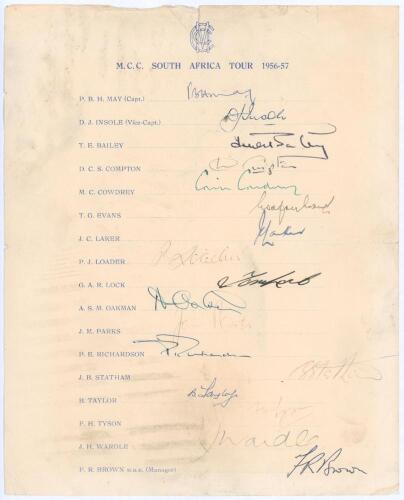 M.C.C. SOUTH AFRICA TOUR 1956-57
P. B. H. MAY (Capt.) PBHMay
D. J. INSOLE (Vice-Capt.) DJInsole
T. E. BAILEY Trevor Bailey
D. C. S. COMPTON Compton
M. C. COWDREY Colin Cowdrey
T. G. EVANS Godfrey Evans
J. C. LAKER
P. J. LOADER P J Loader
G. A. R. LOCK
A. S. M. OAKMAN A Oakman
J. M. PARKS J Parks
P. E. RICHARDSON P. Richardson
J. B. STATHAM JBStatham
B. TAYLOR B Taylor
F. H. TYSON
J. H. WARDLE J Wardle
F. R. BROWN M.B.E. (Manager) F R Brown